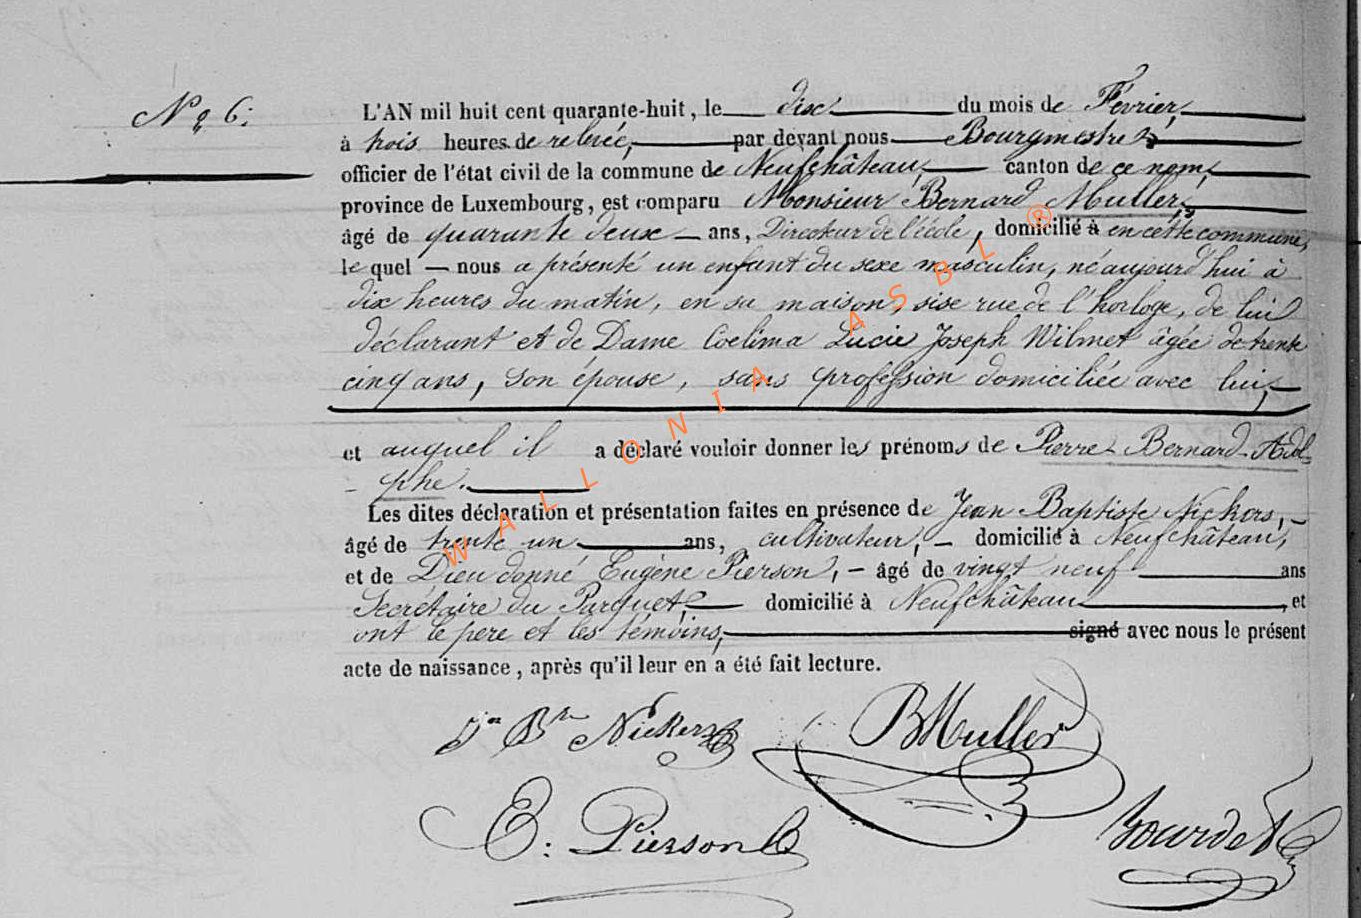 Nº 6.
L'AN mil huit cent quarante-huit, le dix du mois de Février,
à trois heures de relevée, par devant nous Bourgmestre
officier de l'état civil de la commune de Neufchâteau, canton de ce nom,
province de Luxembourg, est comparu Monsieur Bernard Muller,
âgé de quarante deux ans, Directeur de l'école, domicilié à en cette commune,
le quel nous a présenté un enfant du sexe masculin, né aujourd'hui à
dix heures du matin, en sa maison, sise rue de l'horloge, de lui
déclarant et de Dame Coelima Lucie Joseph Wilmet âgée de trente
cinq ans, son épouse, sans profession domiciliée avec lui,
et auquel il a déclaré vouloir donner les prénoms de Pierre-Bernard-Adol-
phe.
Les dites déclaration et présentation faites en présence de Jean Baptiste Nickers,
âgé de trente un ans, cultivateur, domicilié à Neufchâteau,
et de Dieudonné Eugène Pierson, âgé de vingt neuf ans
Secrétaire du Parquet, domicilié à Neufchâteau, et
ont le père et les témoins, signé avec nous le présent
acte de naissance, après qu'il leur en a été fait lecture.
Jn Bte Nickers
BMuller
E. Pierson
Bourdet
WALLONIA ASBL ®